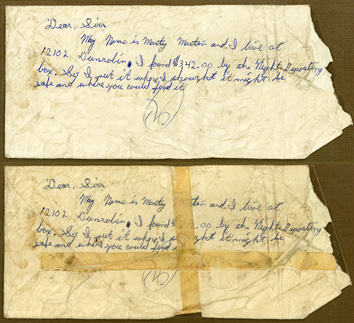 Dear, Sirr
My Name is Marty Martin and I live at
12102 Dunrobin, I found $342.00 by the Night Depository
box. So I put it where I thought it might be
safe and where you could find it
Dear, Sirr
My Name is Marty tin and I live at
12102 Dunrobin I found .00 by the Night Depository
box. So I put it where I ought it might be
safe and where you could find it